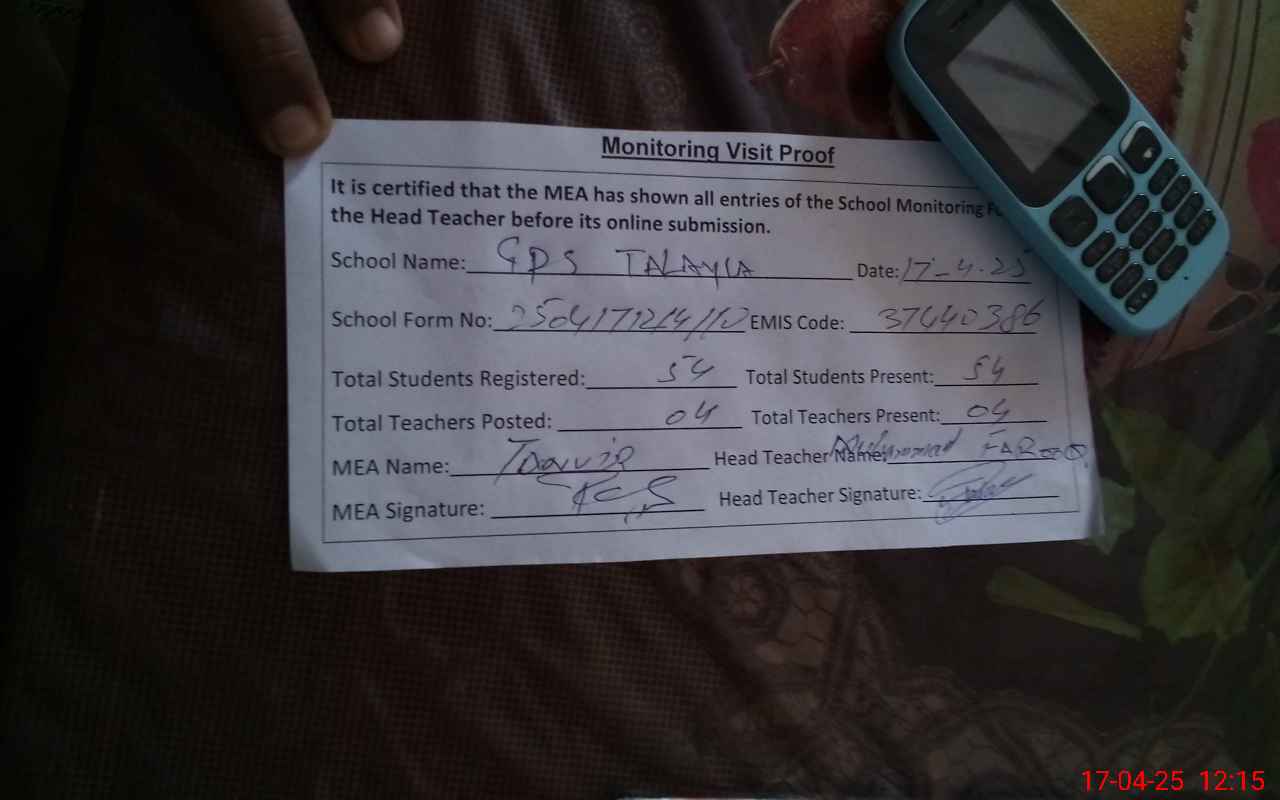 Monitoring Visit Proof
It is certified that the MEA has shown all entries of the School Monitoring
the Head Teacher before its online submission.
School Name: GPS TALAYIA Date: 17-4-25
School Form No: EMIS Code: 37440386
Total Students Registered: 54 Total Students Present: 54
Total Teachers Posted: 04 Total Teachers Present: 04
MEA Name: Tanvir Head Teacher Name: Muhammad FAROOQ
MEA Signature: Head Teacher Signature:
17-04-25 12:15